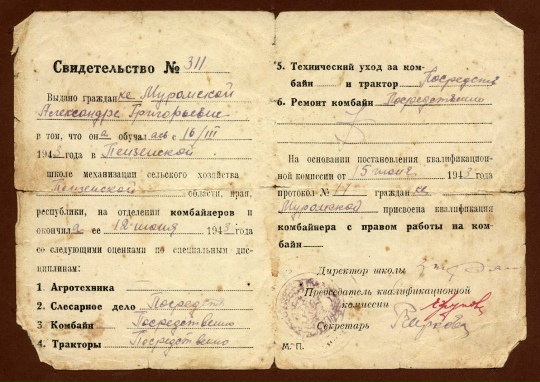 Свидетельство № 311
Выдано гражданке Муромской
Александре Григорьевне
в том, что она обучалась с 16/III
1943 года в Пензенской
школе механизации сельского хозяйства
Пензенской области, края,
республики, на отделении комбайнеров и
окончила ее 12 июня 1943 года
со следующими оценками по специальным дис-
циплинам:
1. Агротехника
2. Слесарное дело Посредств
3. Комбайн Посредственно
4. Тракторы Посредственно
5. Технический уход за ком-
байн и трактор Посредств
6. Ремонт комбайн Посредственно
На основании постановления квалификацион-
ной комиссии от 15 июня 1943 года
протокол № 11 гражданке
Муромской присвоена квалификация
комбайнера с правом работы на ком-
байн
Директор школы
Председатель квалификационной
комиссии
Секретарь
М. П.